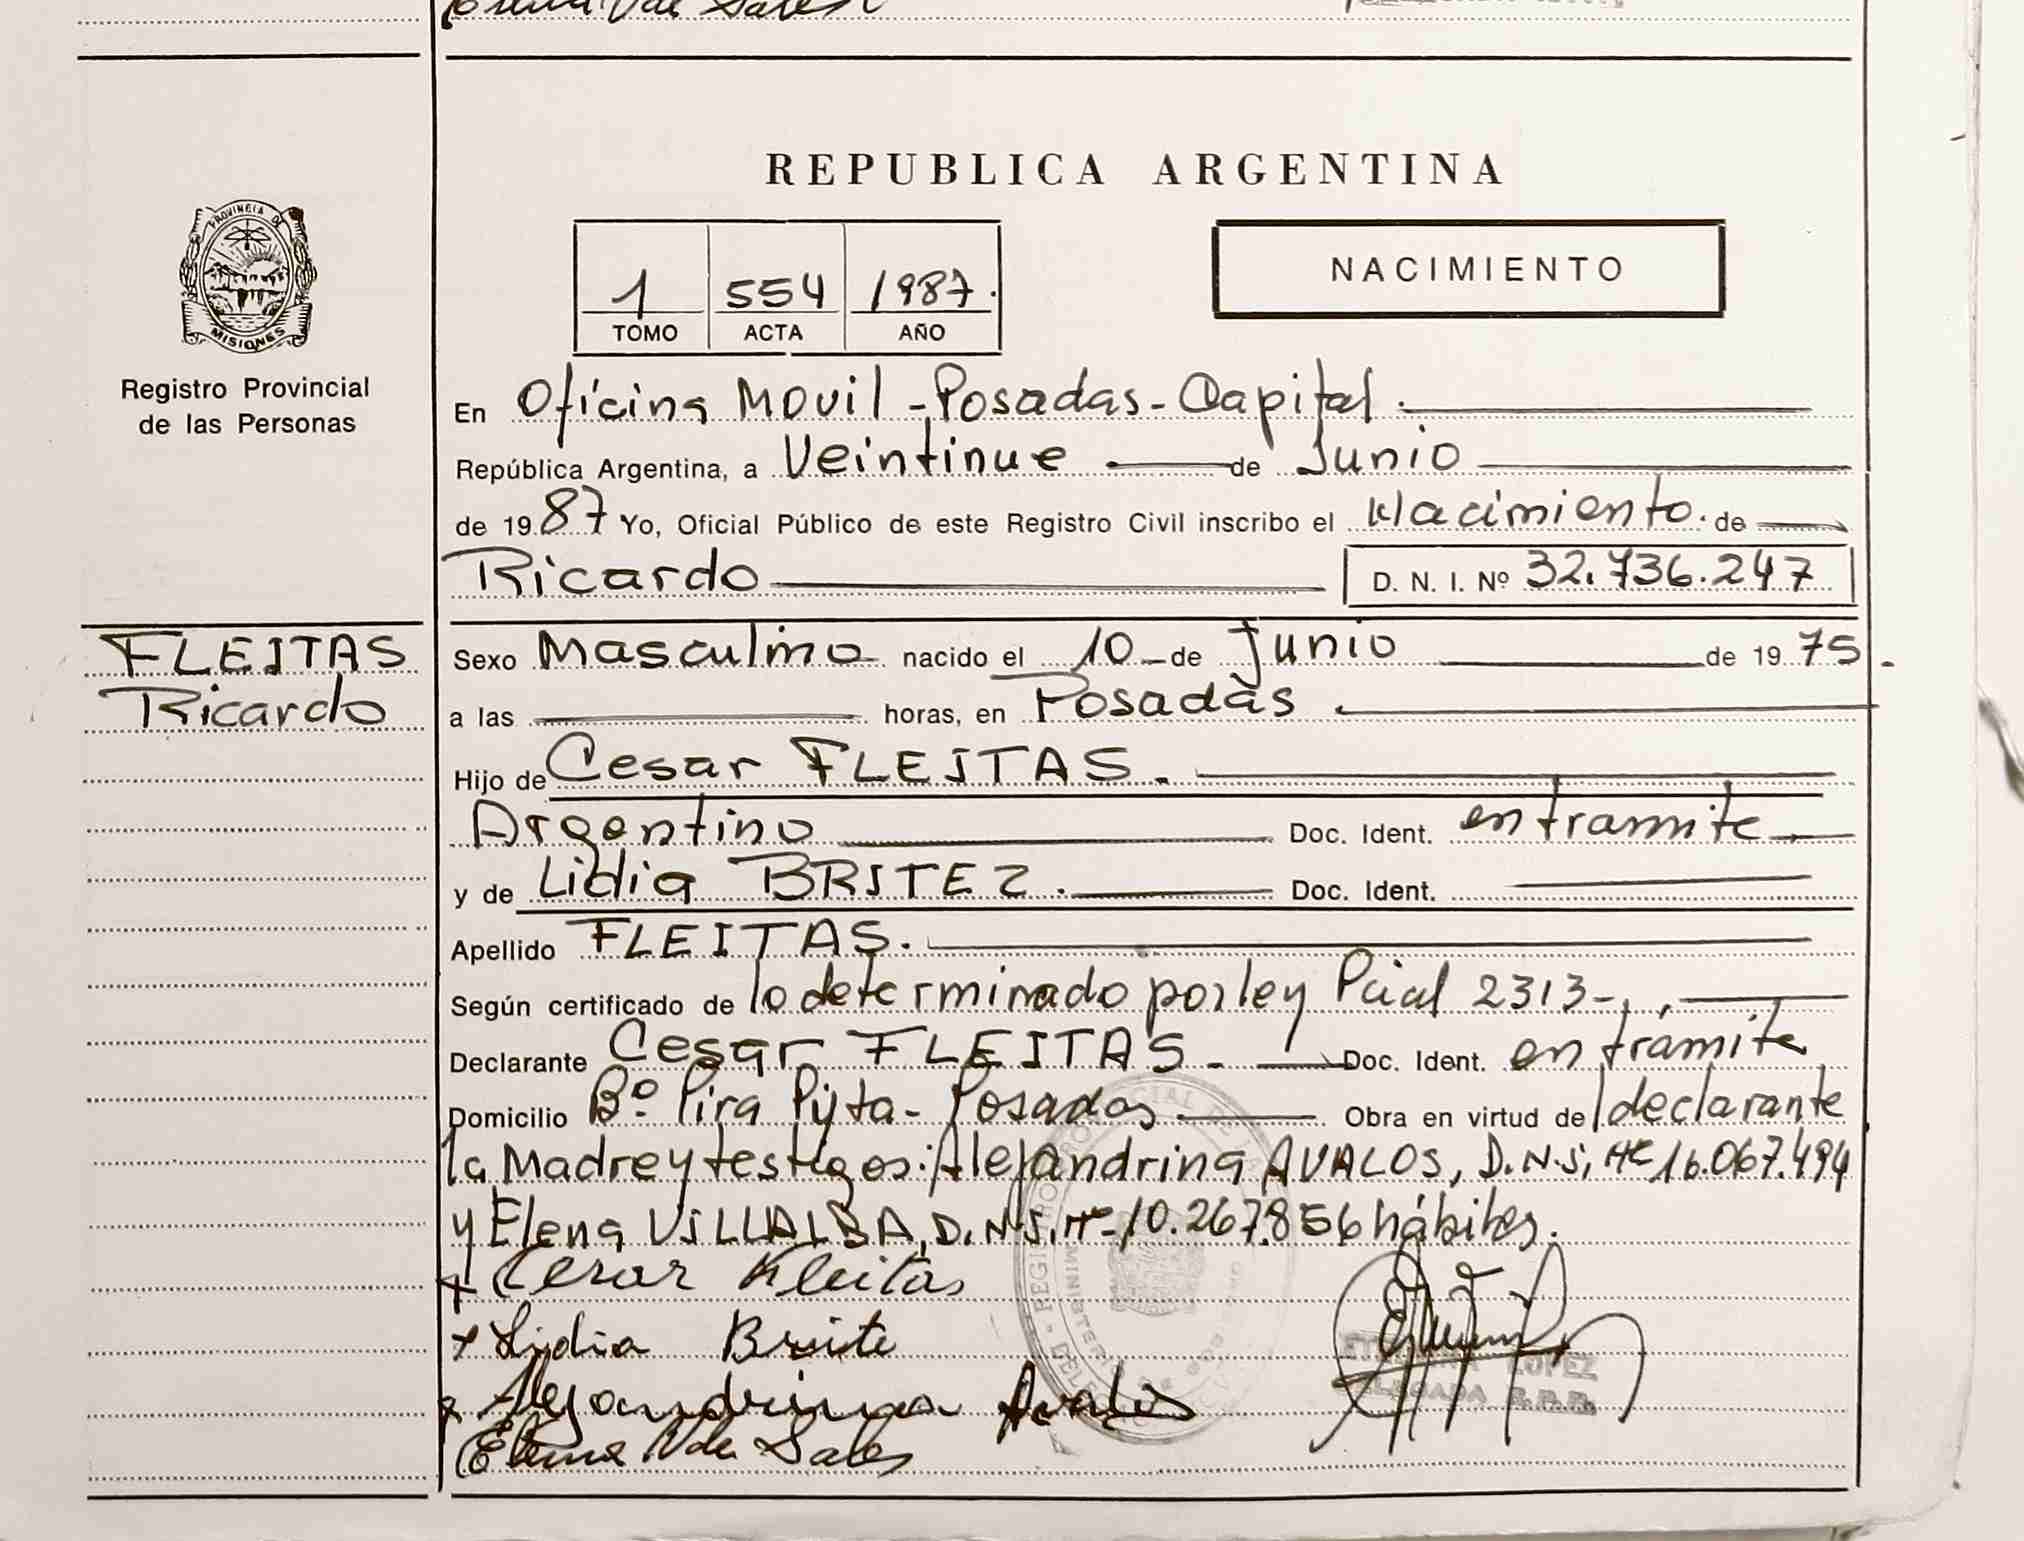 PROVINCIA DE
MISIONES
Registro Provincial
de las Personas
FLEITAS
Ricardo
REPUBLICA ARGENTINA
1 554 1987.
TOMO ACTA AÑO
NACIMIENTO
En Oficina Movil - Posadas - Capital.
República Argentina, a Veintinue de Junio
de 19 87 Yo, Oficial Público de este Registro Civil inscribo el Nacimiento. de
Ricardo D. N. I. Nº 32.736.247
Sexo Masculino nacido el 10 de Junio de 19 75.
a las horas, en Posadas.
Hijo de Cesar FLEITAS.
Argentino Doc. Ident. en tramite
y de Lidia BRITEZ. Doc. Ident.
Apellido FLEITAS.
Según certificado de lo determinado por ley Pcial 2313-.
Declarante Cesar FLEITAS - Doc. Ident. en trámite
Domicilio Bº Pira Pyta - Posadas Obra en virtud de declarante
la Madre y testigos: Alejandrina AVALOS, D.N.I. Nº 16.067.494
y Elena VILLALBA, D.N.I. Nº 10.267.856 hábiles.
x Cesar Fleitas
x Lidia Brite
x Alejandrina Avalos
Elena V de Sales
LOPEZ